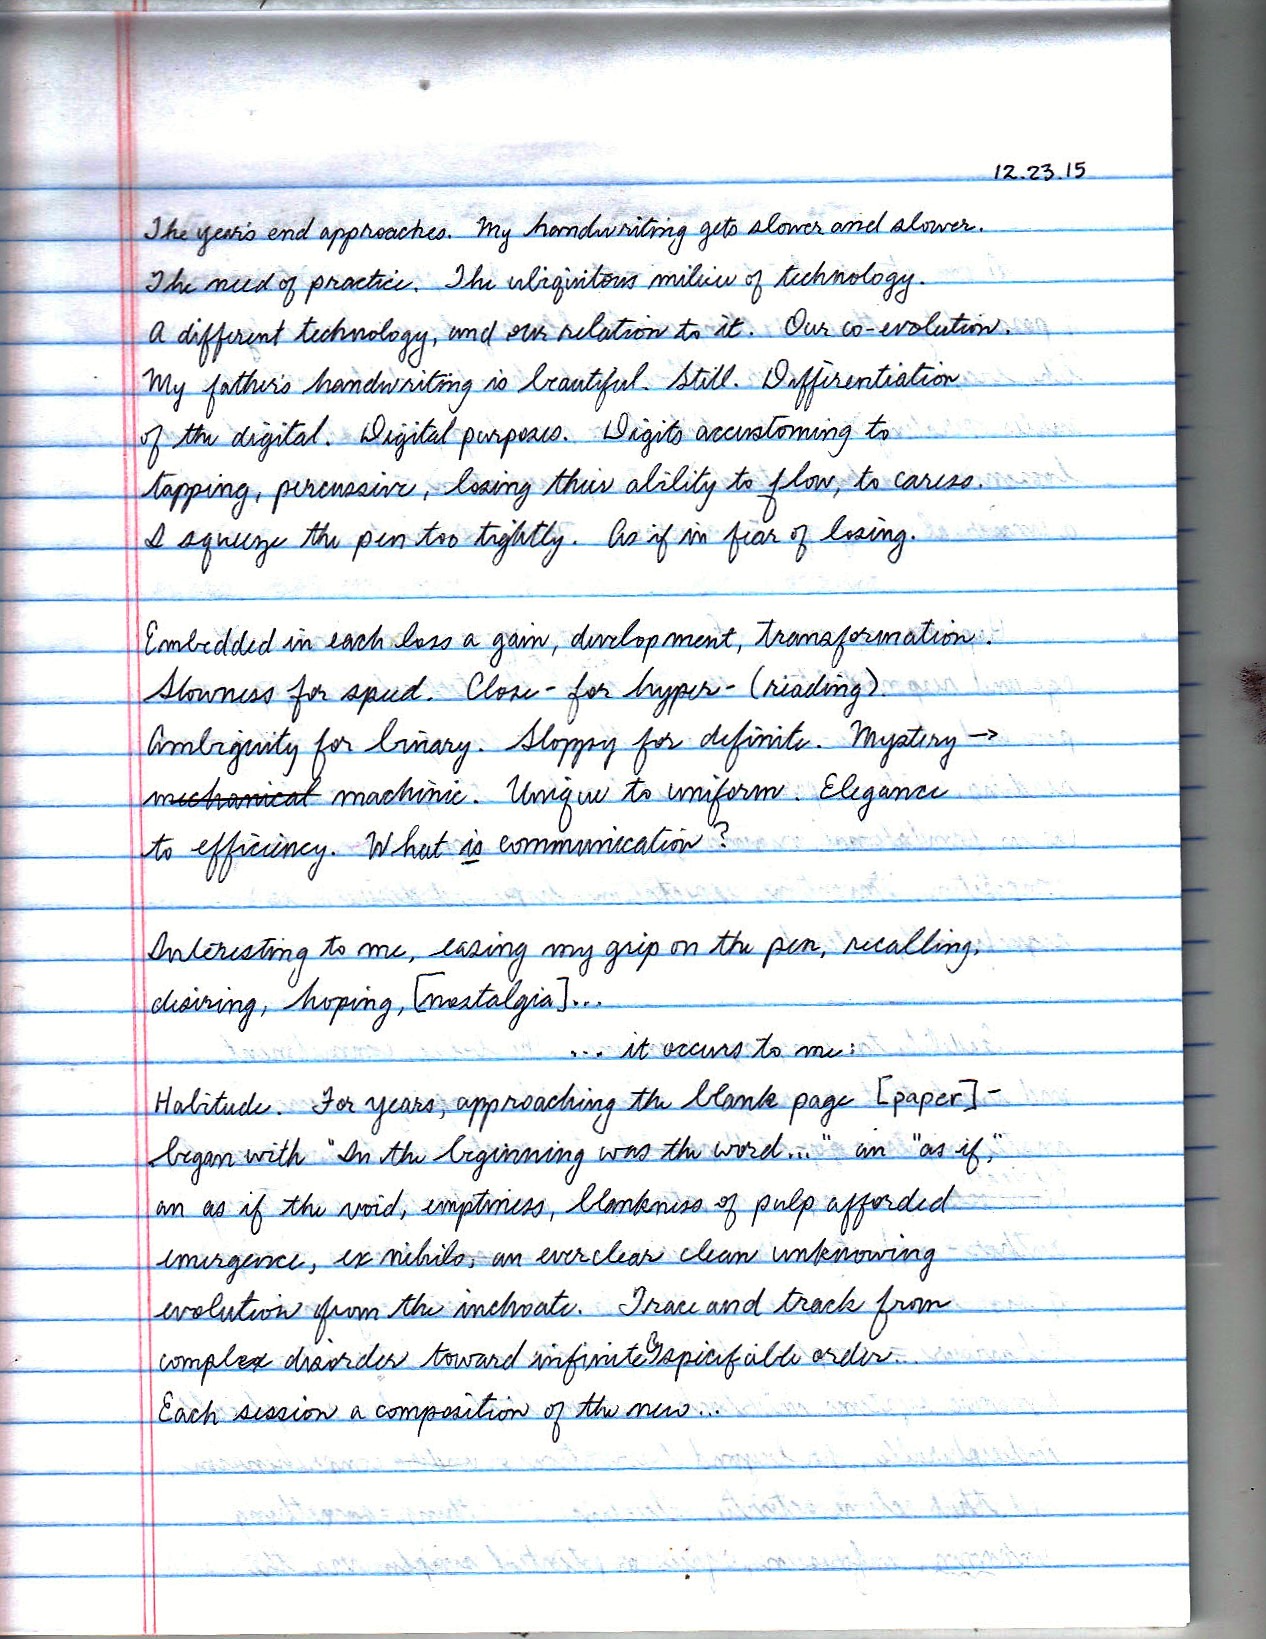 12.23.15
The year's end approaches. My handwriting gets slower and slower.
The need of practice. The ubiquitous milieu of technology.
A different technology, and our relation to it. Our co-evolution.
My father's handwriting is beautiful. Still. Differentiation
of the digital. Digital purposes. Digits accustoming to
tapping, percussive, losing their ability to flow, to caress.
I squeeze the pen too tightly. As if in fear of losing.
Embedded in each loss a gain, development, transformation.
Slowness for speed. Close- for hyper- (reading).
Ambiguity for binary. Sloppy for definite. Mystery →
mechanical machinic. Unique to uniform. Elegance
to efficiency. What is communication?
Interesting to me, easing my grip on the pen, recalling,
desiring, hoping, [nostalgia]...
... it occurs to me:
Habitude. For years, approaching the blank page [paper] -
began with "In the beginning was the word..." an "as if,"
an as if the void, emptiness, blankness of pulp afforded
emergence, ex nihilo, an everclear clean unknowing
evolution from the inchoate. Trace and track from
complex disorder toward infinite specifiable order...
Each session a composition of the new...